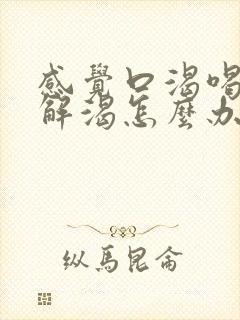 感覺口渴喝
解渴怎麼办
纵馬昆侖